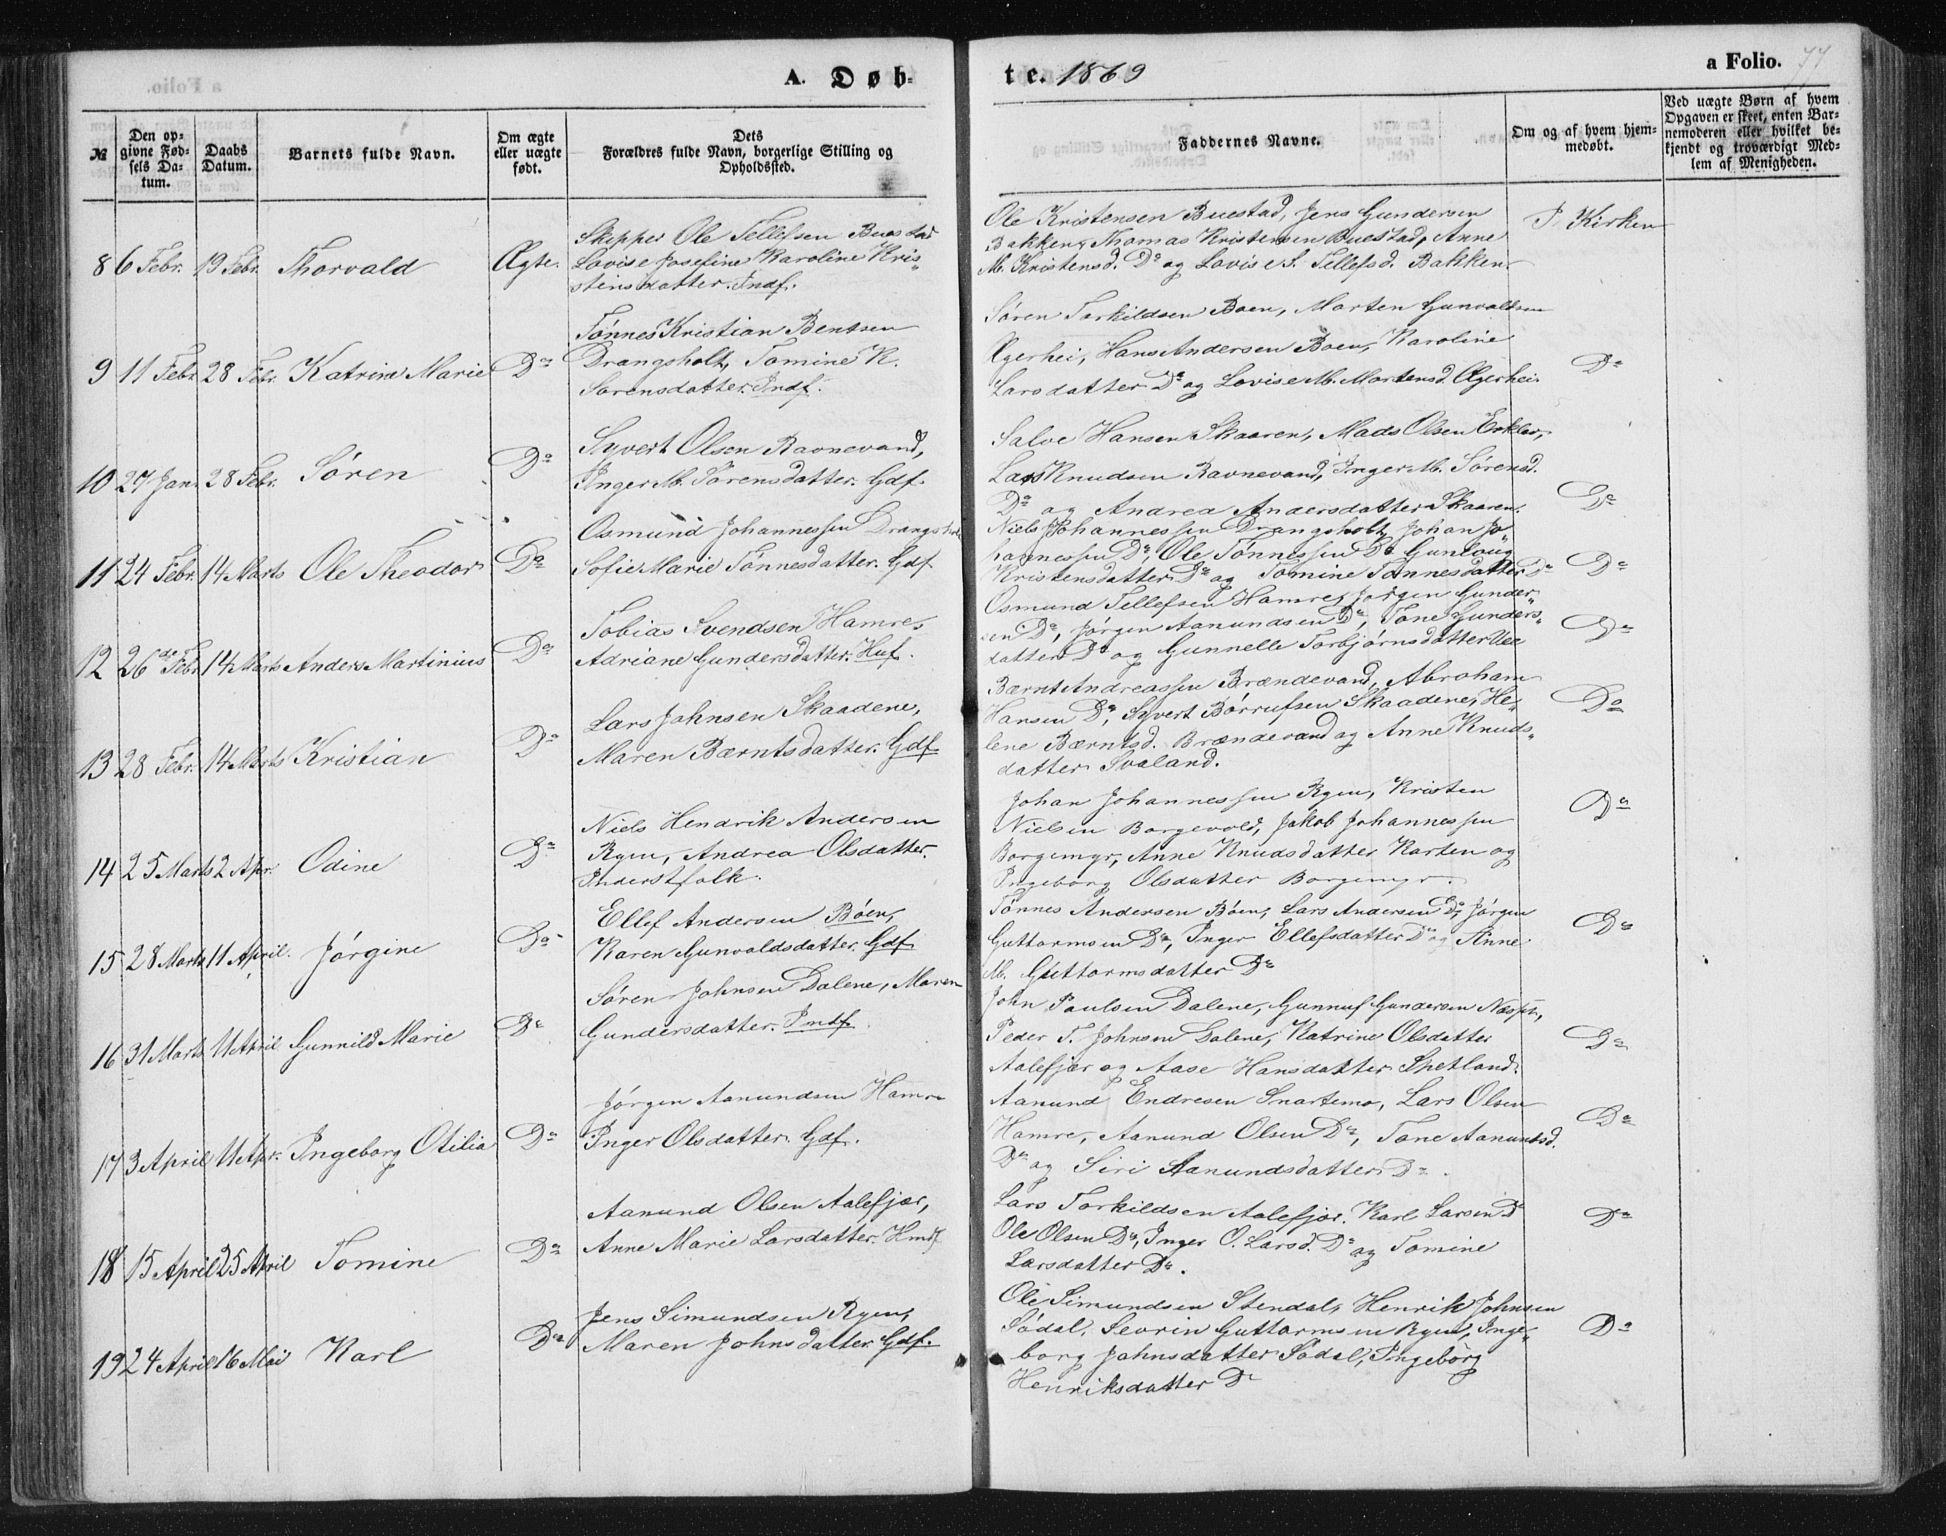 A. Døb-
te. 1869
a Folio. 77
№
Den op-
givne Fød-
sels Da-
tum.
Daabs
Datum.
Barnets fulde Navn.
Om ægte
eller uægte
født.
Dets
Forældres fulde Navn, borgerlige Stilling og
Opholdssted.
Faddernes Navne.
Om og af hvem hjem-
medøbt.
Ved uægte Børn af hvem
Opgaven er skeet, enten Bar-
nemoderen eller hvilket be-
kjendt og troværdigt Med-
lem af Menigheden.
8 6 Febr. 19 Febr. Thorvald Ægte.
Skipper Ole Tellefsen Buestad
Lovise Josefine Karoline Kris„
stensdatter. Indf.
Ole Kristensen Buestad, Jens Gundersen
Bakken, Thomas Kristensen Buestad, Anne
M. Kristensd. Do og Lovise S. Tellefsd. Bakken.
I Kirken
9 11 Febr. 28 Febr. Katrine Marie Do
Tønnes Kristian Bentsen
Drangsholt, Tomine K.
Sørensdatter. Indf.
Søren Torkildsen Boen, Morten Gunvaldsen
Ægerhei, Hans Andersen Boen, Karoline
Larsdatter Do og Lovise M. Mortensd. Ægerhei.
Do
10 27 Jan. 28 Febr. Søren Do
Syvert Olsen Ravnevand,
Inger M. Sørensdatter. Gdf.
Salve Hansen Skaaren, Mads Olsen Erklev,
Lars Knudsen Ravnevand, Inger M. Sørensd.
Do og Andrea Andersdatter Skaaren.
Do
11 24 Febr. 14 Marts Ole Theodor Do
Osmund Johannessen Drangsholt
Sofie Marie Tønnesdatter. Gdf.
Niels Johannessen Drangsholt, Johan Jo„
hannessen Do, Ole Tønnessen Do Gunloug
Kristensdatter Do og Tomine Tønnesdatter Do
Do
12 26de Febr. 14 Marts Anders Martinius Do
Tobias Svendsen Hamre,
Adriane Gundersdatter. Huf.
Osmund Tellefsen Hamre, Jørgen Gunder„
sen Do, Jørgen Aanundsen Do, Tone Gunders„
datter Do og Gunnelle Torbjørnsdatter Uee
Do
13 28 Febr. 14 Marts Kristian Do
Lars Johnsen Skaadene,
Maren Bærntsdatter. Gdf
Bærnt Andreassen Brændevand, Abraham
Hansen Do, Syvert Børrufsen Skaadene, He„
lene Bærntsd. Brændevand og Anne Knuds„
datter Svaland.
Do
14 25 Marts 2 Apr. Odine Do
Niels Hendrik Andersen
Ryen, Andrea Olsdatter.
Inderstfolk.
Johan Johannessen Ryen, Kristen
Nielsen Borgevold, Jakob Johannessen
Borgemyr, Anne Knudsdatter Karten og
Ingeborg Olsdatter Borgemyr.
Do
15 28 Marts 11 April. Jørgine Do
Ellef Andersen Böen,
Karen Gunvaldsdatter. Gdf
Tønnes Andersen Böen, Lars Andersen Do, Jørgen
Guttormsen Do, Inger Ellefsdatter Do og Anne
M. Guttormsdatter Do
Do
16 31 Marts 11 April Gunnild Marie Do
Søren Johnsen Dalene, Maren
Gundersdatter. Indf.
John Paulsen Dalene, Gunnuf Gundersen Næspt,
Peder T. Johnsen Dalene, Katrine Olsdatter
Aalefjær og Aase Hansdatter Spetland.
Do
17 3 April 11 Apr. Ingeborg Otilia Do
Jørgen Aanundsen Hamre
Inger Olsdatter. Gdf.
Aanund Endresen Snartemo, Lars Olsen
Hamre, Aanund Olsen Do, Tone Aanundsd.
Do og Siri Aanundsdatter Do.
Do
18 15 April 25 April Tomine Do
Aanund Olsen Aalefjær,
Anne Marie Larsdatter. Hmdf
Lars Torkildsen Aalefjær. Karl Larsen Do
Ole Olsen Do, Inger O. Larsd. Do og Tomine
Larsdatter Do.
Do
19 24 April 16 Mai Karl Do
Jens Simundsen Ryen,
Maren Johnsdatter Gdf.
Ole Simundsen Stendal, Henrik Johnsen
Sødal, Sevrin Guttormsen Ryen, Inge„
borg Johnsdatter Sødal, Ingeborg
Henriksdatter Do
Do